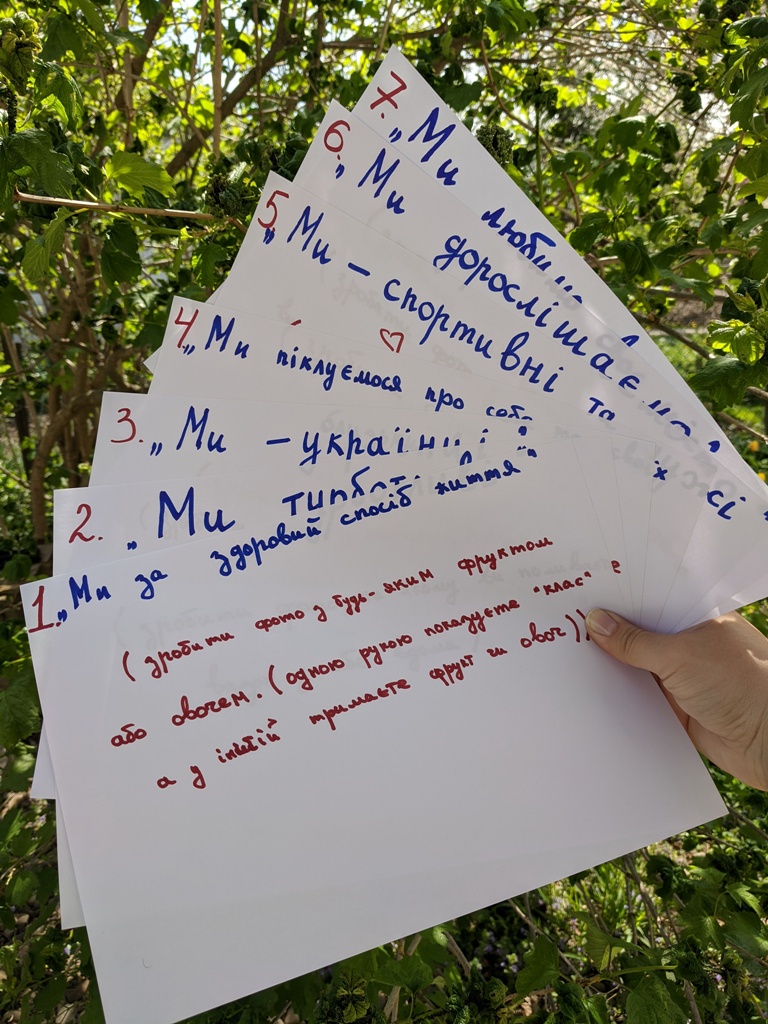 7. „Ми любимо
6. „Ми дорослішаємо
5. „Ми – спортивні та
сі"
4. „Ми піклуємося про себе
3. „Ми – українці
2. „Ми турботливі
1. „Ми за здоровий спосіб життя"
(зробити фото з будь-яким фруктом
або овочем. (одною рукою показуєте "клас"
а у іншій тримаєте фрукт чи овоч))